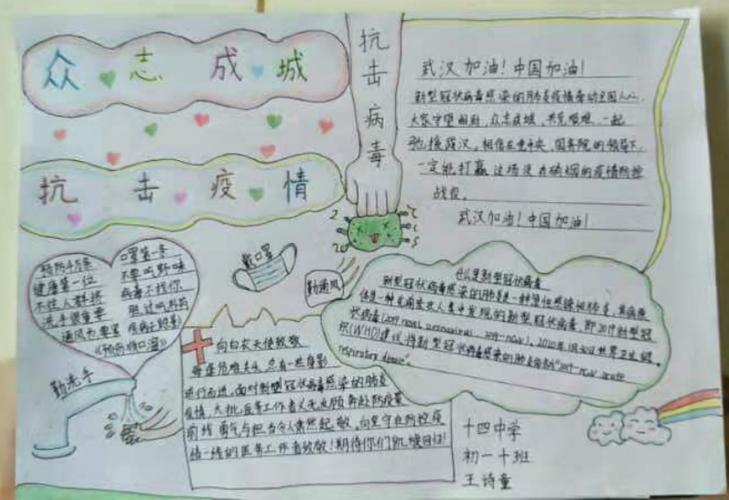 众志成城
抗击疫情
抗击病毒
武汉加油!中国加油!
新型冠状病毒感染的肺炎疫情牵动全国人心,
大家守望相助,众志成城,共克艰难,一起
驰援武汉,相信在党中央、国务院的领导下,
一定能打赢这场没有硝烟的疫情防控
战役。
武汉加油!中国加油!
戴口罩
勤通风
勤洗手
健康第一位
不往人群挤
洗手很重要
通风为重室
口罩第一条
不要吃野味
病毒不找你
胜过吃药
什么是新型冠状病毒
新型冠状病毒感染的肺炎是一种急性感染性肺炎,其病原
体是一种先前未在人类中发现的新型冠状病毒,即2019新型冠
状病毒(2019 novel coronavirus, 2019-nCoV)。2020年1月
织(WHO)建议将新型冠状病毒感染的肺炎命名为"2019-nCoV acute
respiratory disease"。
向白衣天使致敬
每在危难关头,总有一些身影
逆行而进,面对新型冠状病毒感染的肺炎
疫情,大批医务工作者义无反顾奔赴防疫第
前线,勇气与担当令人肃然起敬,向坚守在防控疫
情一线的医务工作者致敬!期待你们凯旋回归!
十四中学
初一十班
王诗童